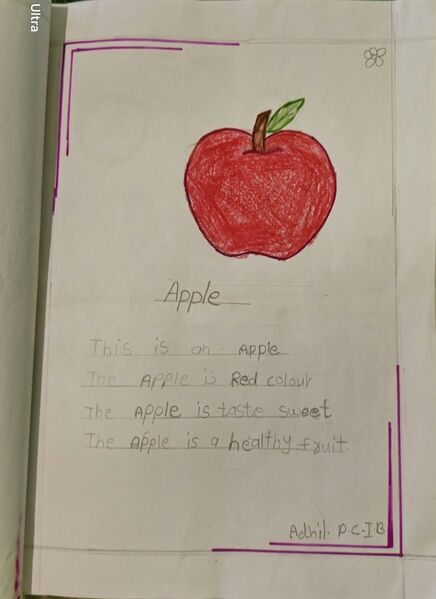 Ultra
Apple
This is an Apple
The APPle is Red colour
The APPle is taste sweet
The Apple is a healthy fruit.
Adhil. P.C.IB